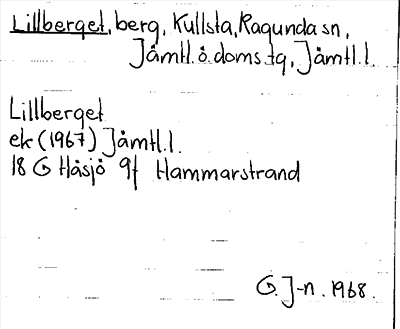 Lillberget, berg, Kullsta, Ragunda sn,
Jämtl. ö. doms. tg, Jämtl. l.
Lillberget
ek (1967) Jämtl. l.
18 G Håsjö 9f Hammarstrand
G. J-n. 1968.